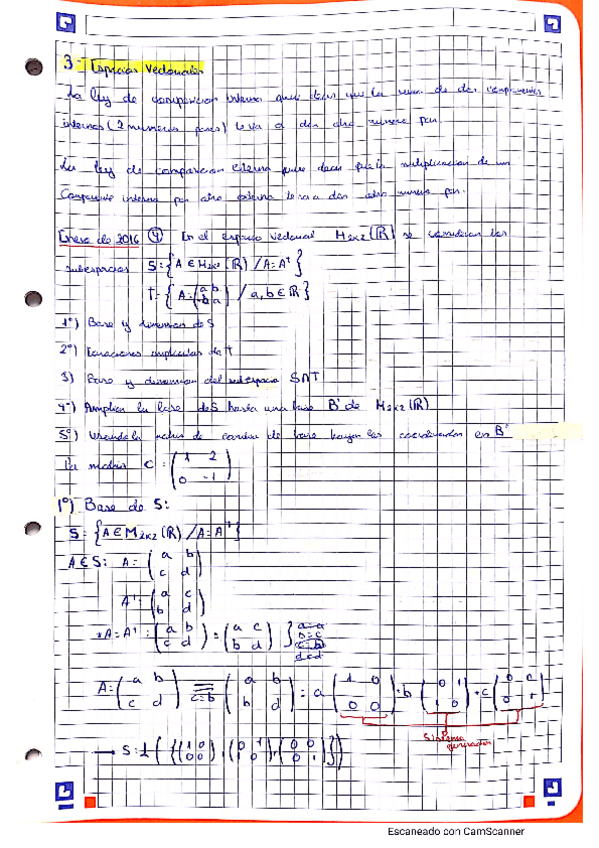 3- Espacios Vectoriales
La ley de composicion interna quiere decir que la suma de dos componentes
internos (2 numeros pares) te va a dar otro numero par.
La ley de composicion externa quiere decir que la multiplicacion de un
Componente interno por otro externo te va a dar otro numero par.
Enero de 2016 (4) En el espacio vectorial M2x2(ℝ) se consideran los
subespacios S={A∈M2x2(ℝ)/A=Aᵗ}
T={A=(a b / -b a) / a,b∈ℝ}
1º) Base y dimension de S
2º) Ecuaciones implicitas de T
3) Base y dimension del subespacio S∩T
4º) Ampliar la base de S hasta una base B' de M2x2(ℝ)
5º) Usando la matriz de cambio de base hayar las coordenadas en B'
la matriz C=(1 2 / 0 -1)
1º) Base de S:
S={A∈M2x2(ℝ)/A=Aᵗ}
A∈S: A=(a b / c d)
Aᵗ=(a c / b d)
*A=Aᵗ:(a b / c d)=(a c / b d) } a=a b=c c=b d=d
A=(a b / c d) ≡ c=b (a b / b d) = a(1 0 / 0 0)+b(0 1 / 1 0)+c(0 0 / 0 1)
Sistema
generador
→ S=L({(1 0 / 0 0),(0 1 / 1 0),(0 0 / 0 1)})
Escaneado con CamScanner